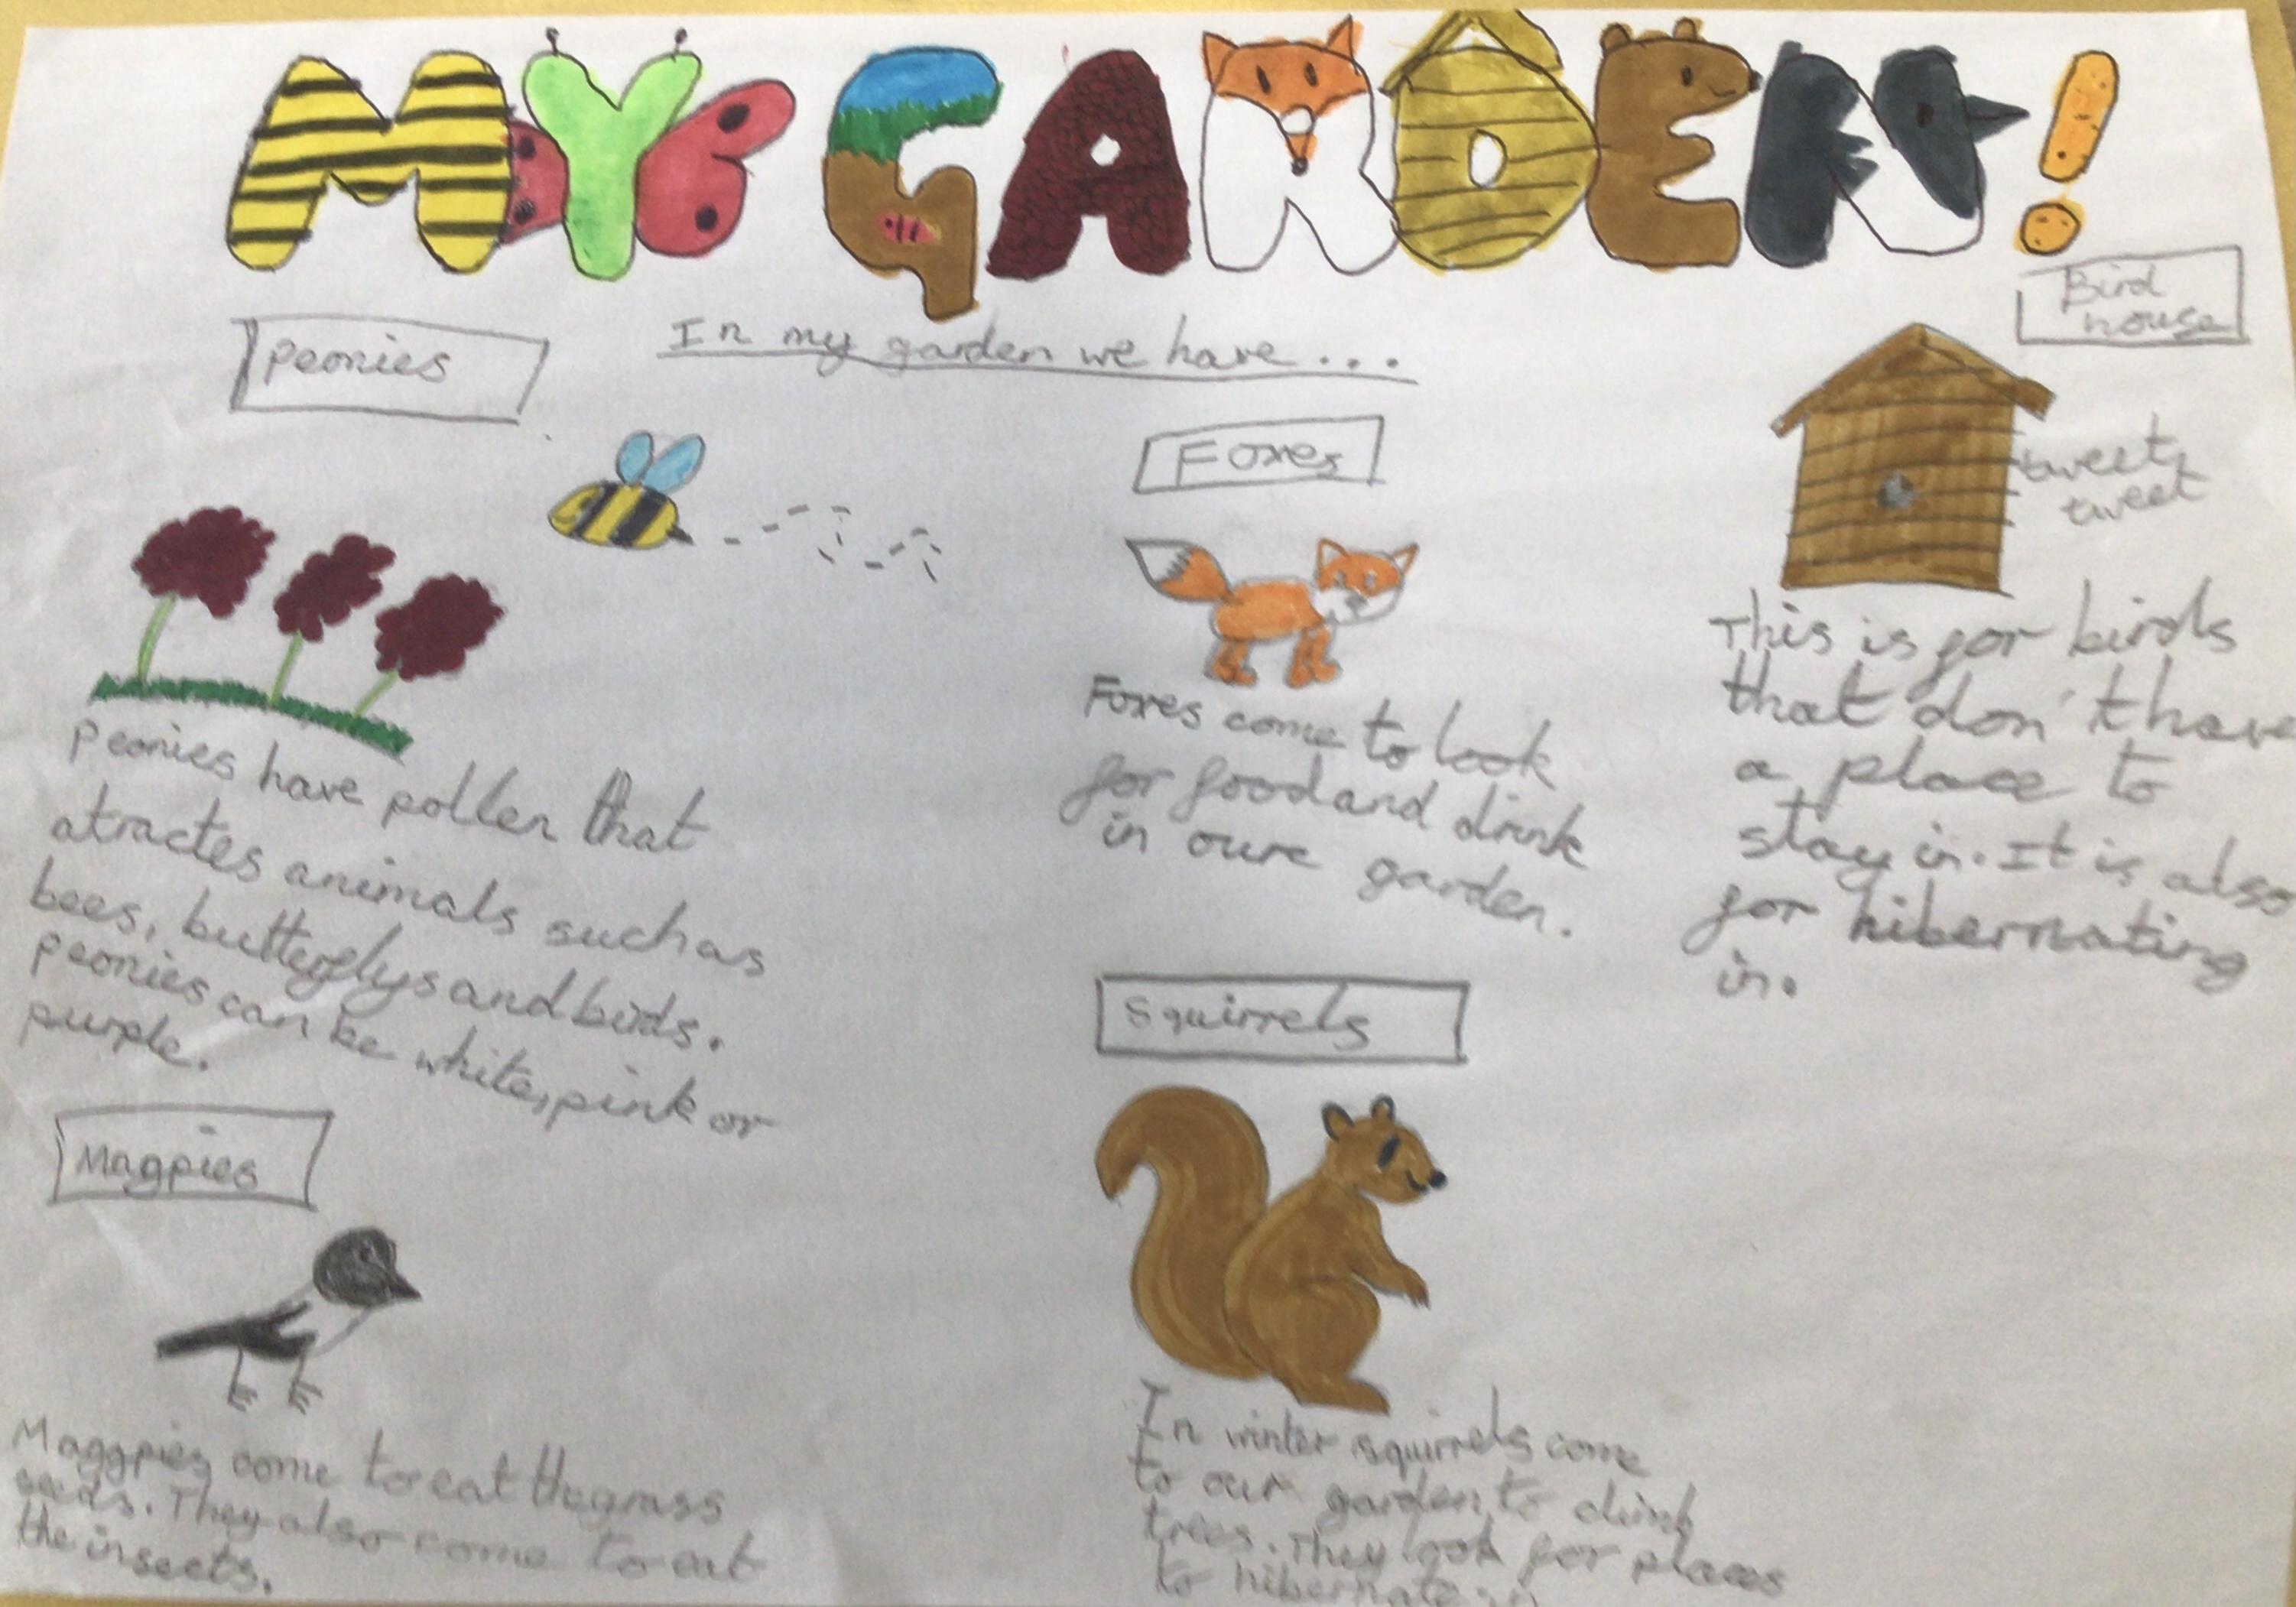 MY GARDEN!
In my garden we have...
Peonies
Peonies have pollen that
atractes animals such as
bees, butterflys and birds.
peonies can be white, pink or
purple.
Magpies
Maggpies come to eat the grass
seeds. They also come to eat
the insects.
Foxes
Foxes come to look
for food and drink
in oure garden.
Squirrels
In winter squirrels come
to our garden to climb
trees. They look for places
to hibernate in
Bird
house
tweet
tweet
This is for birds
that don't have
a place to
stay in. It is also
for hibernating
in.